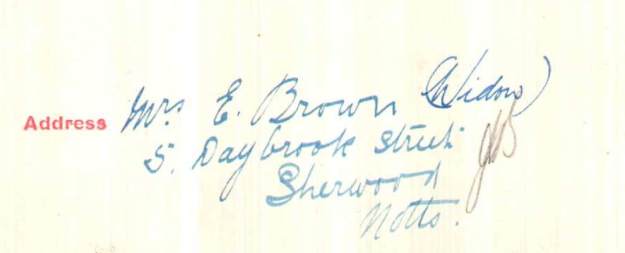 Address Mrs E. Brown (Widow)
5. Daybrook Street
Sherwood
Notts.